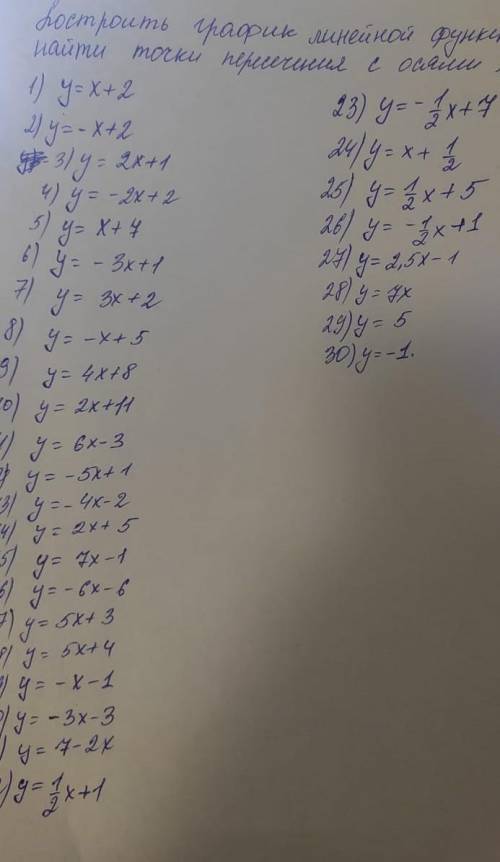 Построить график линейной функ
найти точки пересечения с осями
1) y = x + 2
2) y = -x + 2
3) y = 2x + 1
4) y = -2x + 2
5) y = x + 7
6) y = -3x + 1
7) y = 3x + 2
8) y = -x + 5
9) y = 4x + 8
10) y = 2x + 11
1) y = 6x - 3
y = -5x + 1
3) y = -4x - 2
4) y = 2x + 5
5) y = 7x - 1
6) y = -6x - 6
7) y = 5x + 3
8) y = 5x + 4
9) y = -x - 1
0) y = -3x - 3
) y = 7 - 2x
) y = 1/2 x + 1
23) y = -1/2 x + 7
24) y = x + 1/2
25) y = 1/2 x + 5
26) y = -1/2 x + 1
27) y = 2,5x - 1
28) y = 7x
29) y = 5
30) y = -1.